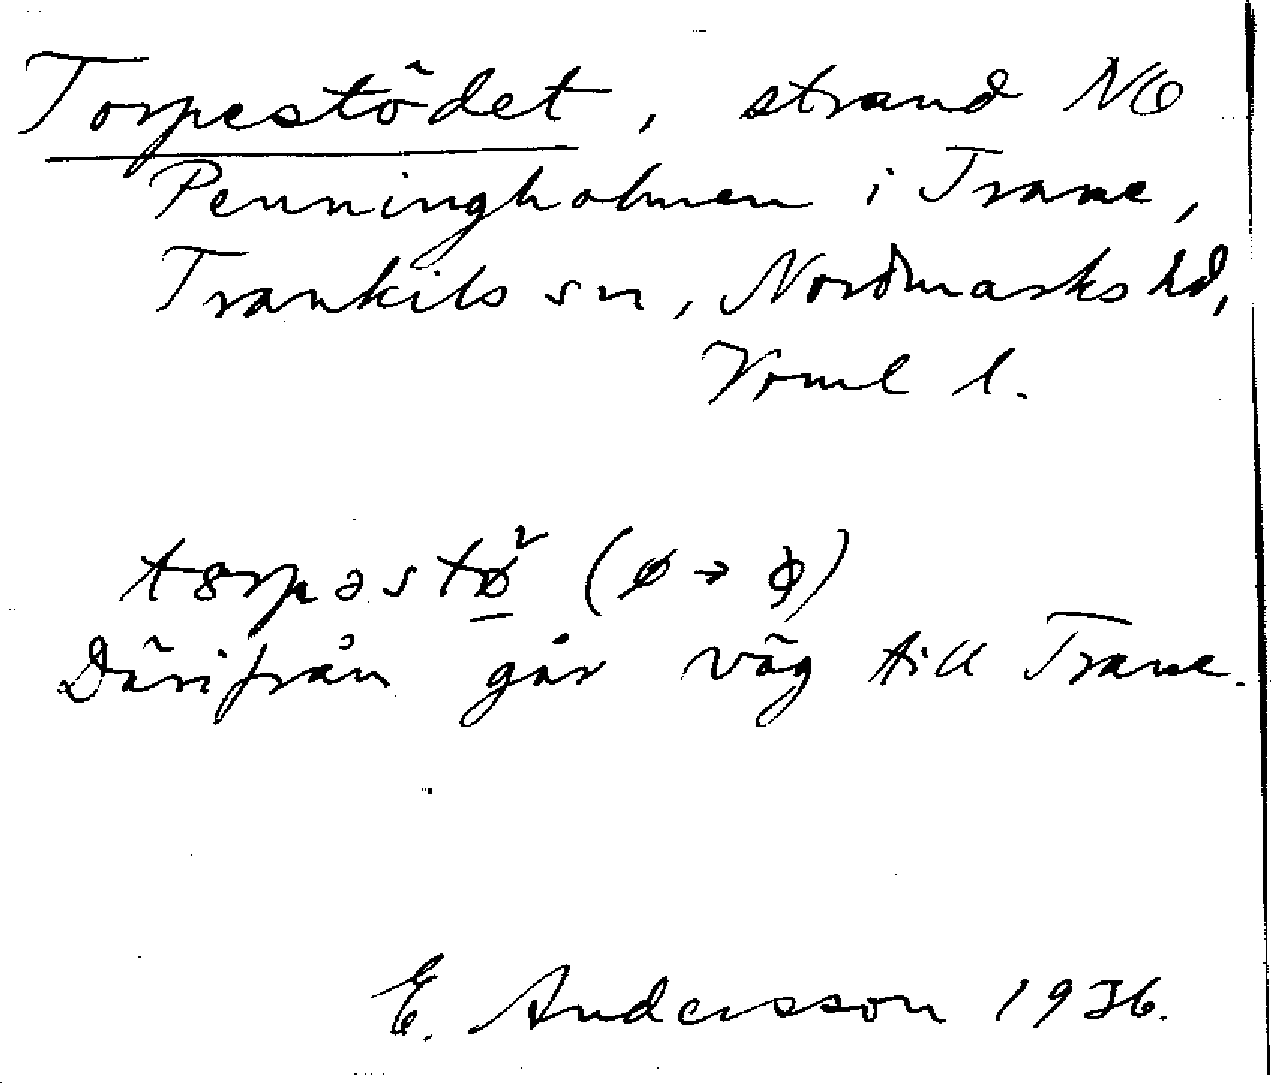 Torpestödet, strand NÖ
Penningholmen i Trane,
Trankils sn, Nordmarks hd,
Vrml l.
(ø → ϕ)
Därifrån går väg till Trane.
E. Andersson 1936.